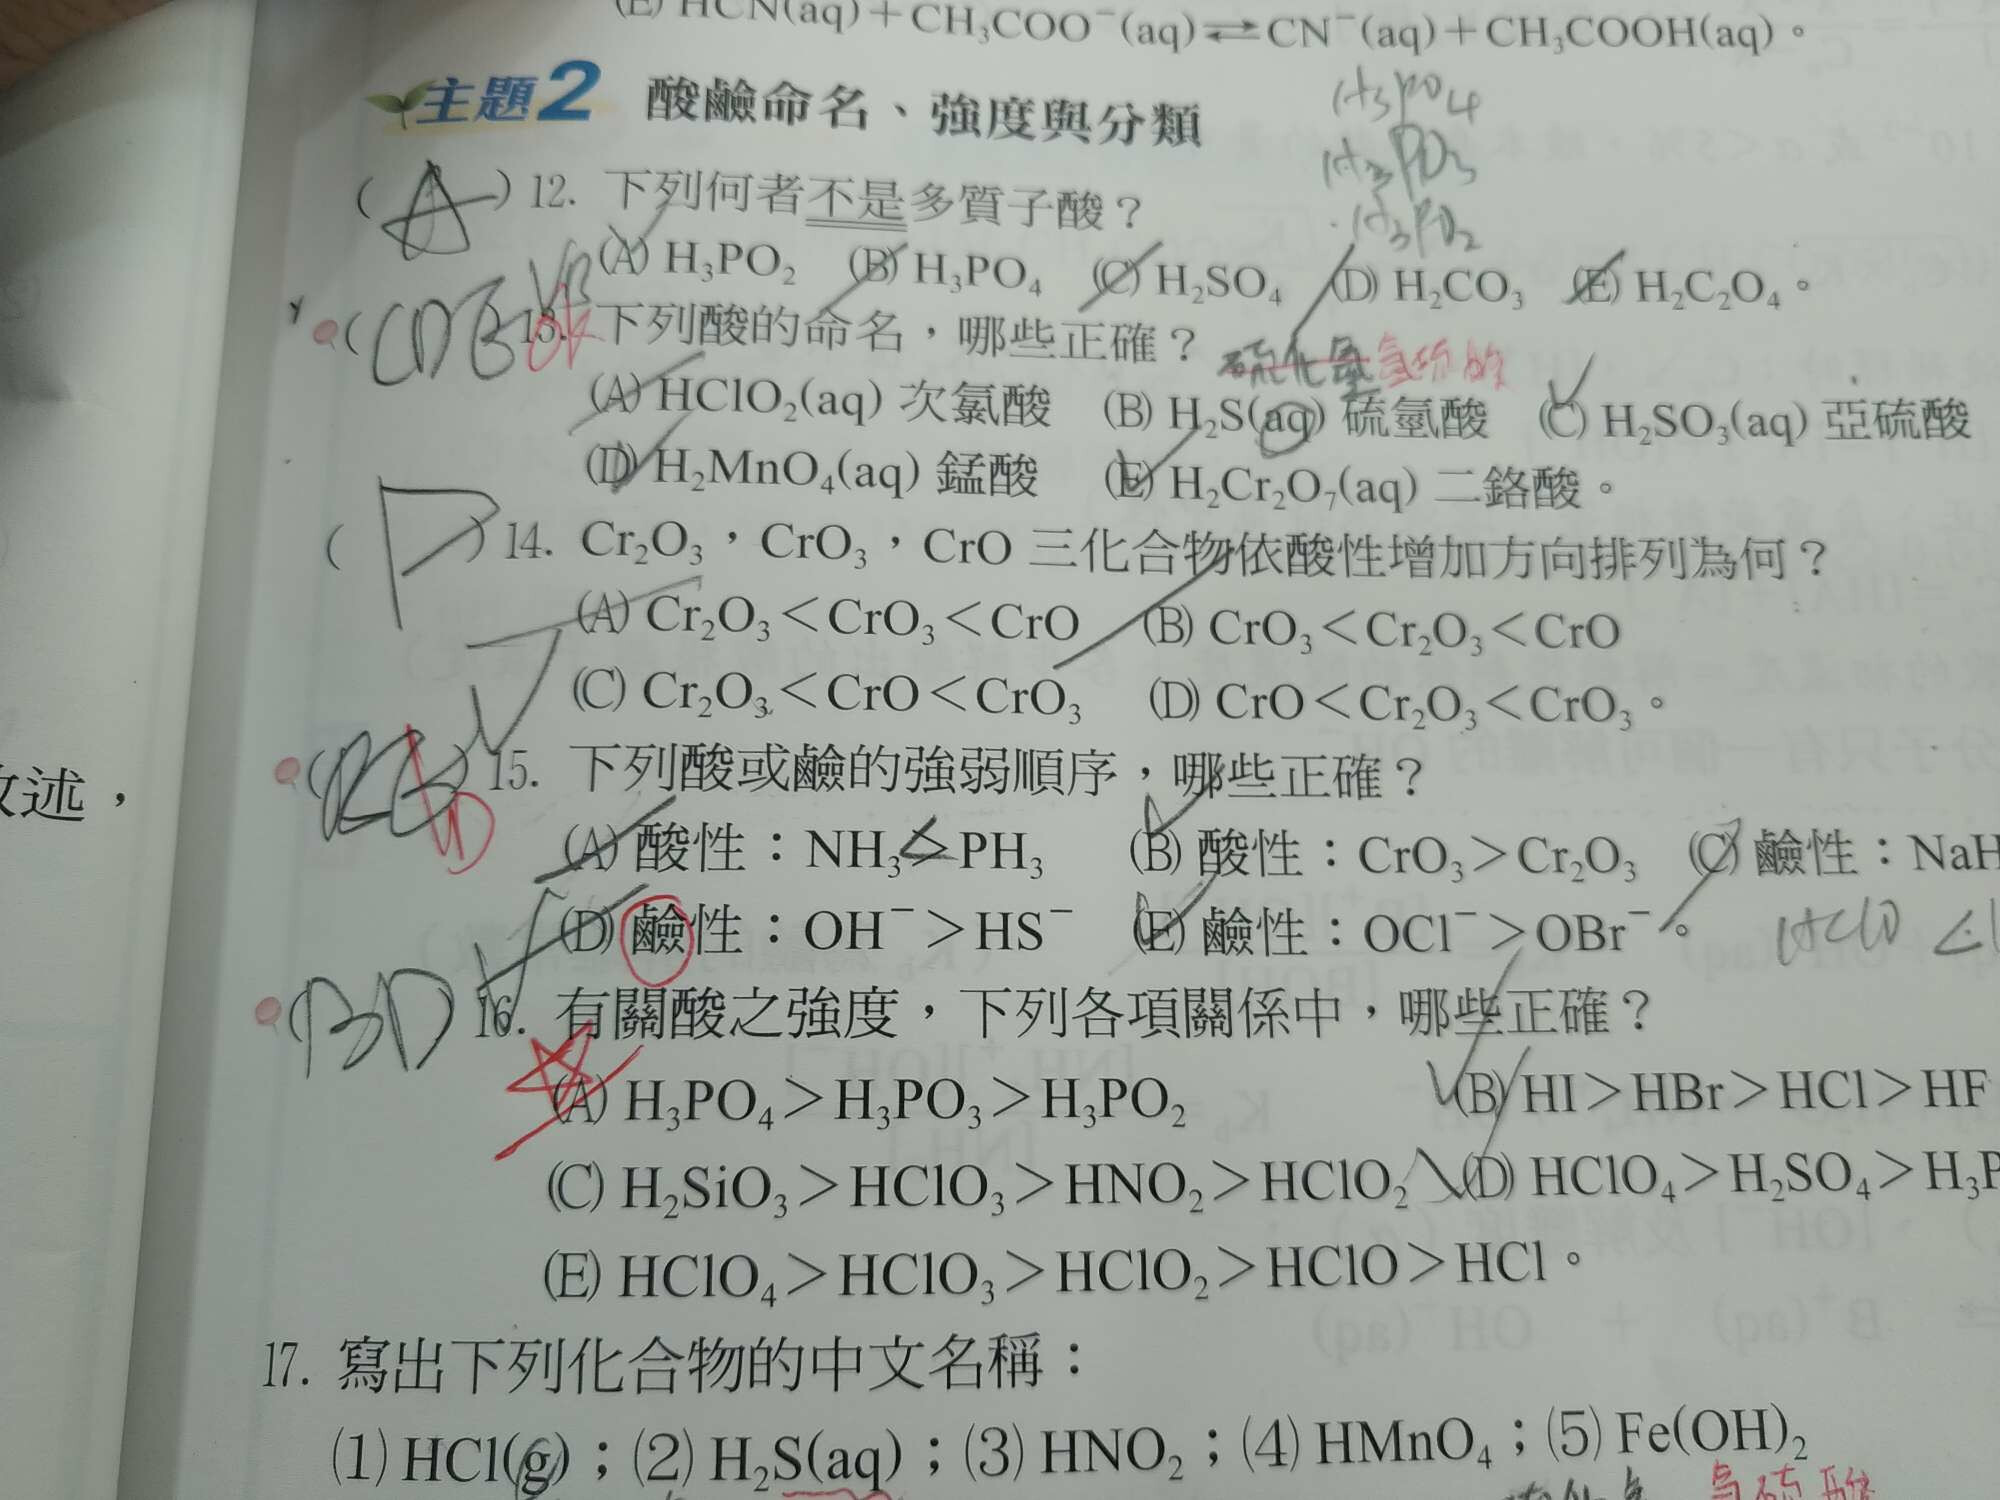 (E) HCN(aq)+CH₃COO⁻(aq)⇌CN⁻(aq)+CH₃COOH(aq)。
主題2 酸鹼命名、強度與分類
H₃PO₄
H₃PO₃
H₃PO₂
(A) 12. 下列何者不是多質子酸？
(A) H₃PO₂ (B) H₃PO₄ (C) H₂SO₄ (D) H₂CO₃ (E) H₂C₂O₄。
(CDE) 13. 下列酸的命名，哪些正確？
硫化氫
(A) HClO₂(aq) 次氯酸 (B) H₂S(aq) 硫氫酸 (C) H₂SO₃(aq) 亞硫酸
(D) H₂MnO₄(aq) 錳酸 (E) H₂Cr₂O₇(aq) 二鉻酸。
( ) 14. Cr₂O₃，CrO₃，CrO 三化合物依酸性增加方向排列為何？
(A) Cr₂O₃<CrO₃<CrO (B) CrO₃<Cr₂O₃<CrO
(C) Cr₂O₃<CrO<CrO₃ (D) CrO<Cr₂O₃<CrO₃。
敘述，
( ) 15. 下列酸或鹼的強弱順序，哪些正確？
D
(A) 酸性：NH₃>PH₃ (B) 酸性：CrO₃>Cr₂O₃ (C) 鹼性：NaH
(D) 鹼性：OH⁻>HS⁻ (E) 鹼性：OCl⁻>OBr⁻。
HClO <
(BD) 16. 有關酸之強度，下列各項關係中，哪些正確？
(A) H₃PO₄>H₃PO₃>H₃PO₂ (B) HI>HBr>HCl>HF
(C) H₂SiO₃>HClO₃>HNO₂>HClO₂ (D) HClO₄>H₂SO₄>H₃P
(E) HClO₄>HClO₃>HClO₂>HClO>HCl。
17. 寫出下列化合物的中文名稱：
(1) HCl(g)；(2) H₂S(aq)；(3) HNO₂；(4) HMnO₄；(5) Fe(OH)₂
氫硫酸